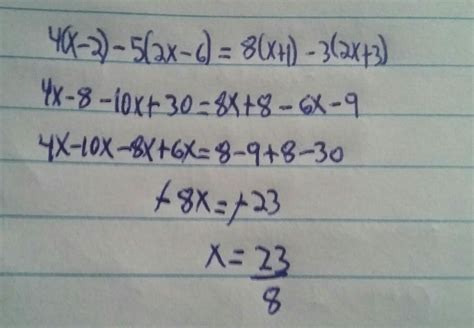 4(x-2)-5(2x-6)=8(x+1)-3(2x+3)
4x-8-10x+30=8x+8-6x-9
4x-10x-8x+6x=8-9+8-30
-8x=-23
x=23/8